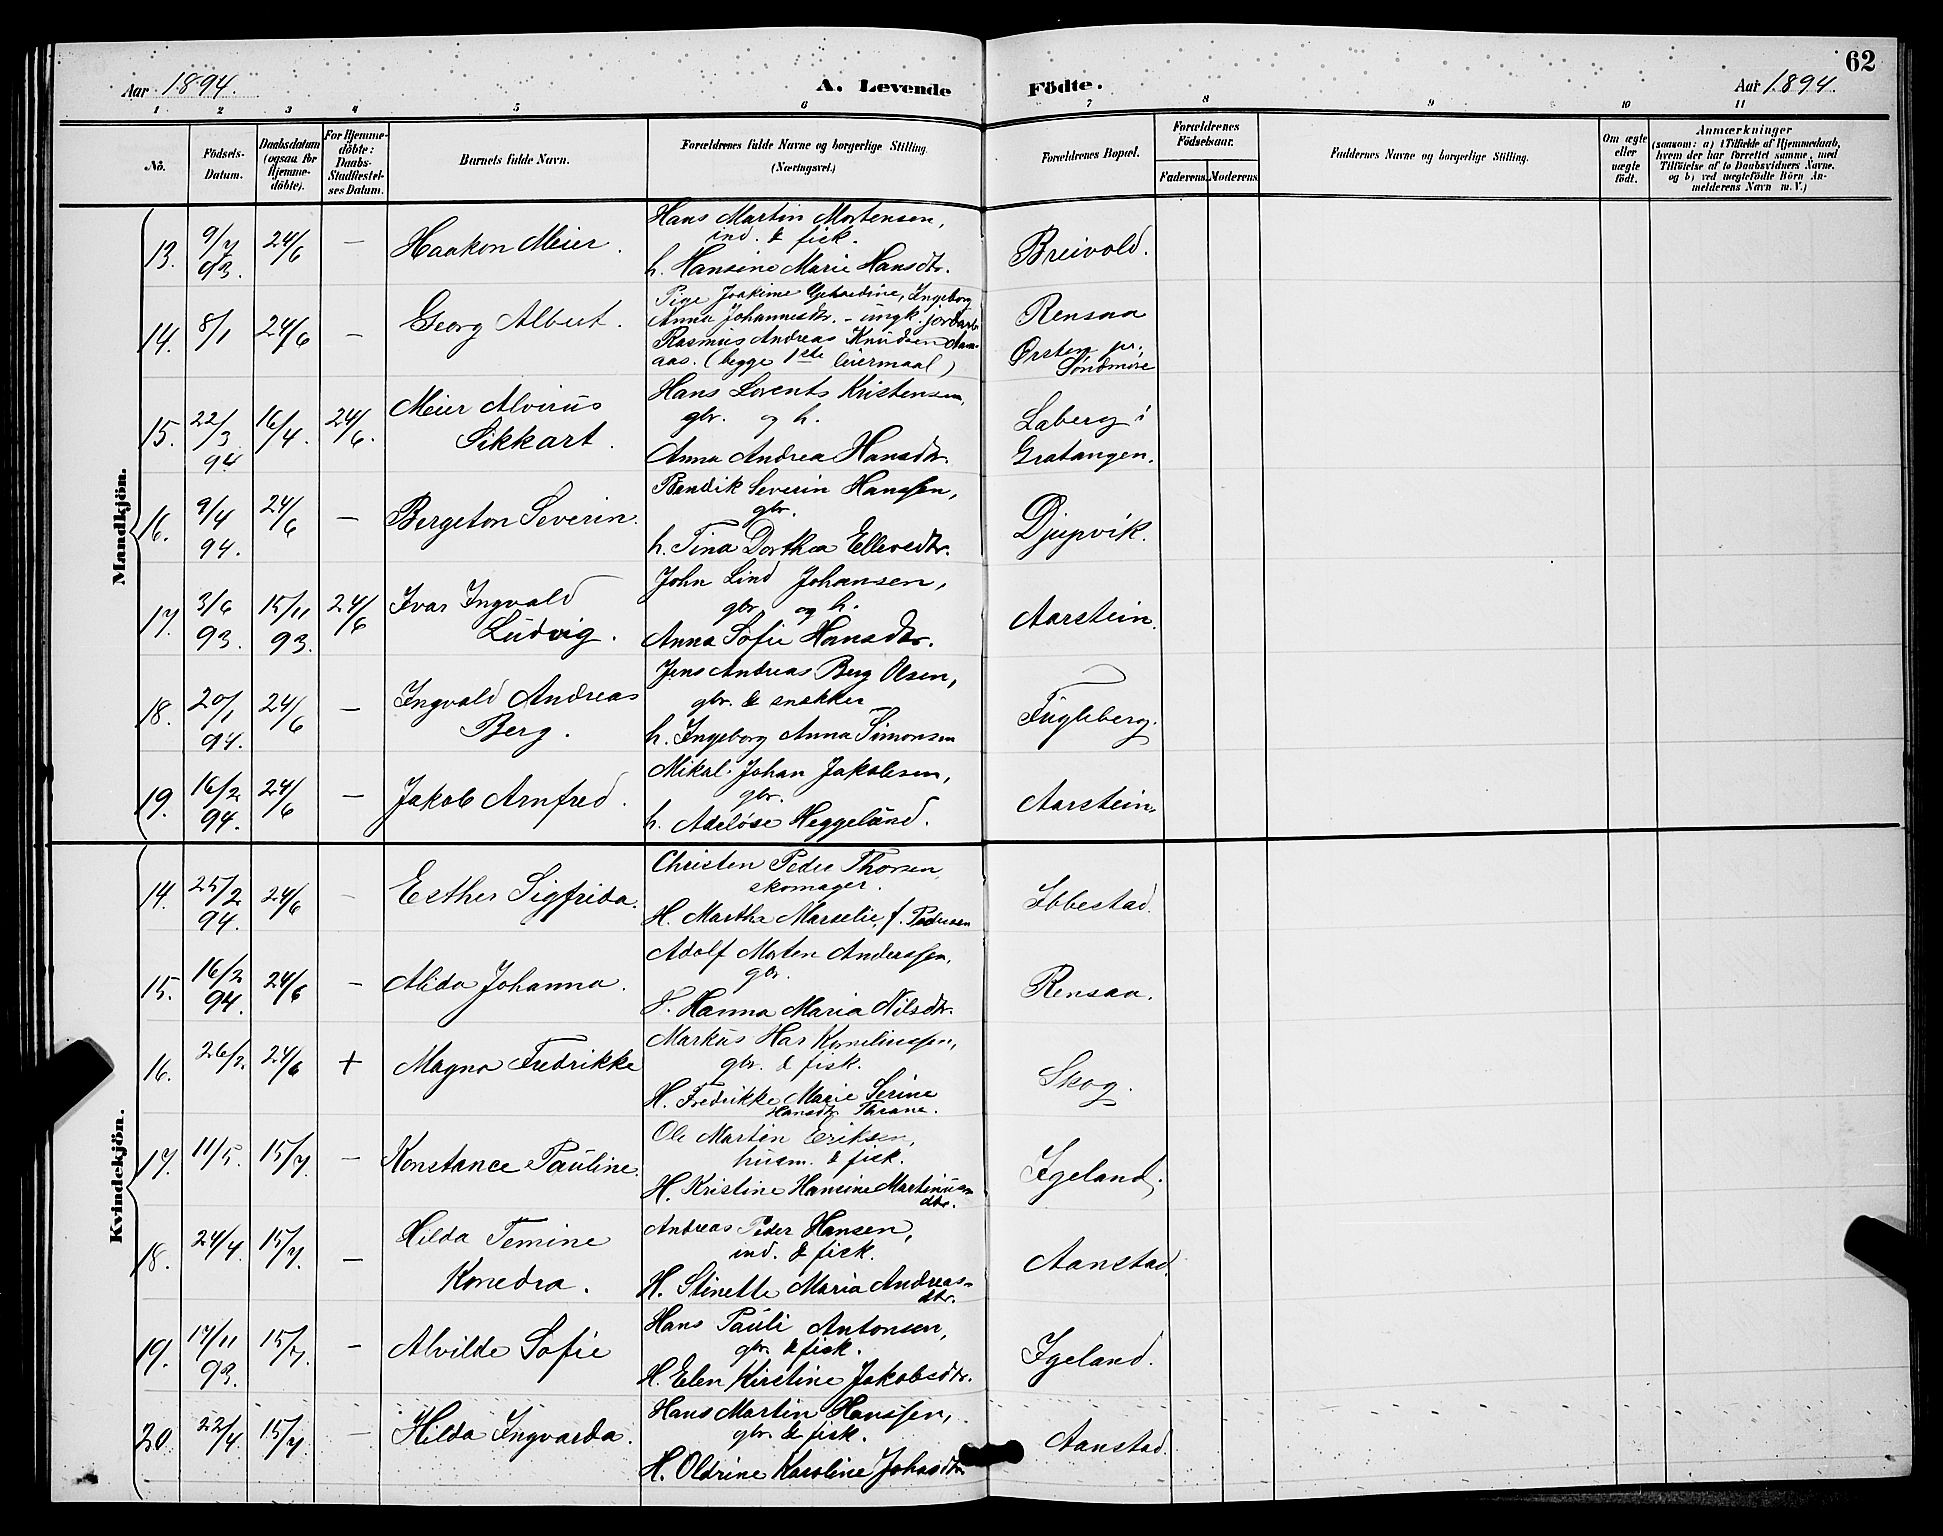 62
Aar 1894.
A. Levende Födte.
Aar 1894.
1 2 3 4 5 6 7 8 9 10 11
No.
Födsels-Datum.
Daabsdatum (ogsaa for Hjemme-döbte).
For Hjemme-döbte: Daabs-Stadfæstel-ses Datum.
Barnets fulde Navn.
Forældrenes fulde Navne og borgerlige Stilling (Næringsvei.)
Forældrenes Bopæl.
Forældrenes Födselsaar.
Faderens. Moderens.
Faddernes Navne og borgerlige Stilling.
Om ægte eller uægte født.
Anmærkninger
(saasom: a) i Tilfælde af Hjemmedaab,
hvem der har forrettet samme, med
Tilföielse af to Daabsvidners Navne,
og b) ved uægtefödte Börn An-
melderens Navn m. V.)
Mandkjön.
13. 9/7 93. 24/6 — Haakon Meier.
Hans Martin Mortensen,
ind. & fisk.
h. Hansine Marie Hansdtr.
Breivold.
14. 8/1 24/6 — Georg Albert.
Pige Joakime Gehardine, Ingeborg
Anna Johannesdtr. - ungk. jordarb.
Rasmus Andreas Knudsen Aam-
aas. (begge 1ste leiermaal)
Rensaa
Ørsten pr. Söndmöre
15. 22/3 94 16/4. 24/6. Meier Alvirus Sikkart.
Hans Lorents Kristensen,
gbr. og h.
Anna Andrea Hansdtr.
Laberg i Gratangen.
16. 9/4 94. 24/6 — Bergeton Severin.
Bendik Severin Hanssen,
gbr.
h. Tina Dorthea Ellevsdtr.
Djupvik.
17. 3/6 93. 15/11 93. 24/6 Ivar Ingvald Ludvig.
John Lind Johansen,
gbr. og h.
Anna Sofie Hansdtr.
Aarstein.
18. 20/1 94. 24/6 — Ingvald Andreas Berg.
Jens Andreas Berg Olsen,
gbr. & snekker
h. Ingeborg Anna Simonsen
Fugleberg.
19. 16/2 94. 24/6 — Jakob Arnfred.
Mikal Johan Jakobsen,
gbr.
h. Adelöse Heggelund.
Aarstein.
Kvindekjön.
14. 25/2 94. 24/6 — Esther Sigfrida.
Christen Peder Thorsen
skomager.
H. Martha Marselie, f. Pedersen
Ibbestad.
15. 16/2 94. 24/6 — Alida Johanna.
Adolf Morten Anderssen,
gbr.
H. Hanna Maria Nilsdtr.
Rensaa.
16. 26/2. 24/6 + Magna Fredrikke
Markus Har Korneliussen,
gbr. & fisk.
H. Fredrikke Marie Serine
Hansdtr. Thrane.
Skog.
17. 11/5. 15/7. — Konstance Pauline.
Ole Martin Eriksen,
husm. & fisk.
H. Kristine Hansine Martinus-
dtr.
Igeland.
18. 24/4. 15/7. — Hilda Temine Konedra.
Andreas Peder Hansen,
ind. & fisk.
H. Stinette Maria Andreas-
dtr.
Aanstad.
19. 17/11 93. 15/7. — Alvilde Sofie
Hans Pauli Antonsen,
gbr. & fisk.
H. Elen Kirstine Jakobsdtr.
Igeland.
20. 22/4. 15/7. — Hilda Ingvarda.
Hans Martin Hanssen,
gbr. & fisk.
H. Oldrine Karoline Johasdtr.
Aanstad.